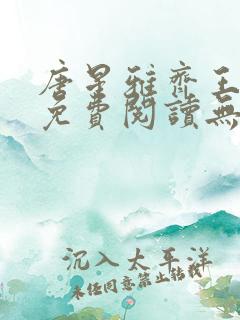 唐星雅齊王
免費閱讀無
沉入太平洋
未经同意禁止转载